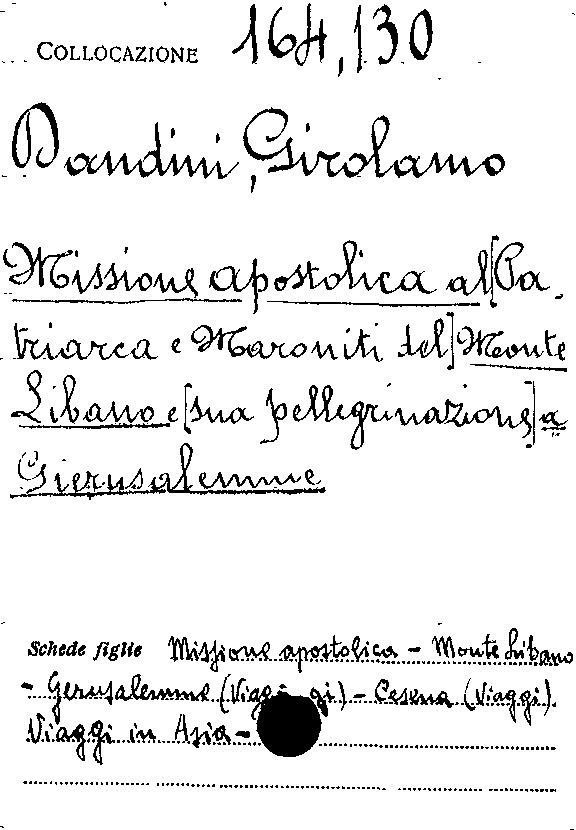 COLLOCAZIONE 164,130
Dandini, Girolamo
Missione apostolica al [Pa-
triarca e Maroniti del] Monte
Libano e [sua pellegrinazione] a
Gierusalemme
Schede figlie Missione apostolica - Monte Libano
- Gerusalemme (Viaggi) - Cesena (Viaggi).
Viaggi in Asia -